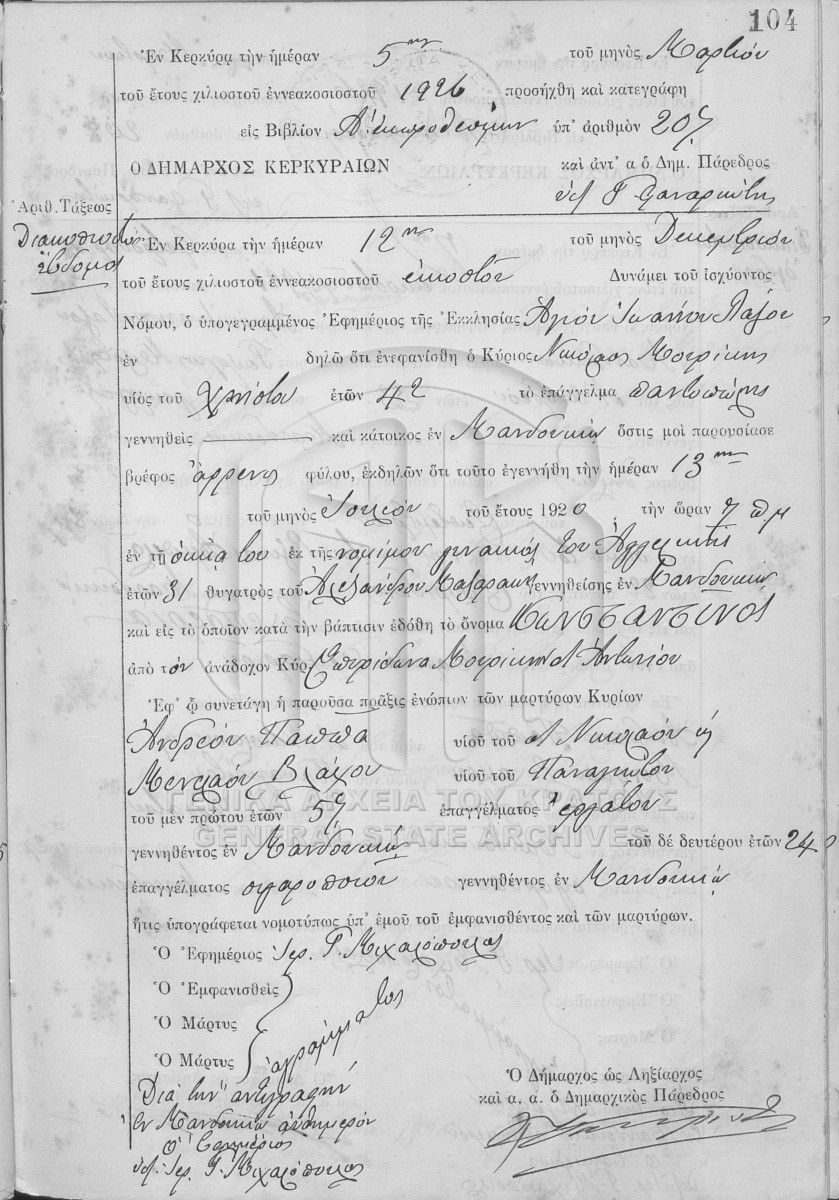 104
Ἐν Κερκύρᾳ τὴν ἡμέραν 5ην τοῦ μηνὸς Μαρτίου
τοῦ ἔτους χιλιοστοῦ ἐννεακοσιοστοῦ 1926 προσήχθη καὶ κατεγράφη
εἰς Βιβλίον ὑπ' ἀριθμὸν
Ο ΔΗΜΑΡΧΟΣ ΚΕΡΚΥΡΑΙΩΝ καὶ ἀντ' α ὁ Δημ. Πάρεδρος
Ἀριθ. Τάξεως
Διακοσιοστὸς
ἑβδομος
Ἐν Κερκύρᾳ τὴν ἡμέραν 12ην τοῦ μηνὸς Δεκεμβρίου
τοῦ ἔτους χιλιοστοῦ ἐννεακοσιοστοῦ εἰκοστοῦ Δυνάμει τοῦ ἰσχύοντος
Νόμου, ὁ ὑπογεγραμμένος Ἐφημέριος τῆς Ἐκκλησίας Ἁγίου Ἰωάννου Λαζου
ἐν δηλῶ ὅτι ἐνεφανίσθη ὁ Κύριος Νικόλαος Μουρίκης
υἱὸς τοῦ Χρήστου ἐτῶν 42 τὸ ἐπάγγελμα παντοπώλης
γεννηθεὶς καὶ κάτοικος ἐν Μανδουκίῳ ὅστις μοὶ παρουσίασε
βρέφος ἄρρενος φύλου, ἐκδηλῶν ὅτι τοῦτο ἐγεννήθη τὴν ἡμέραν 13ην
τοῦ μηνὸς Ἰουλίου τοῦ ἔτους 1920 τὴν ὥραν 7 π.μ
ἐν τῇ οἰκίᾳ του ἐκ τῆς νομίμου γυναικός του Ἀγγελικῆς
ἐτῶν 31 θυγατρὸς τοῦ Ἀλεξάνδρου Μαζαρακη γεννηθείσης ἐν Μανδουκίῳ
καὶ εἰς τὸ ὁποῖον κατὰ τὴν βάπτισιν ἐδόθη τὸ ὄνομα Κωνσταντῖνος
ἀπὸ τὸν ἀνάδοχον Κύρ. Σπυρίδωνα Μουρίκην Ἀντωνίου
Ἐφ' ᾧ συνετάγη ἡ παροῦσα πρᾶξις ἐνώπιον τῶν μαρτύρων Κυρίων
Ἀνδρέου Παππα υἱοῦ τοῦ Νικολάου κ
Μενελάου Βλάχου υἱοῦ τοῦ Παναγιώτου
ΓΕΝΙΚΑ ΑΡΧΕΙΑ ΤΟΥ ΚΡΑΤΟΥΣ
τοῦ μὲν πρώτου ἐτῶν 57 ἐπαγγέλματος ἐργάτου
GENERAL STATE ARCHIVES
γεννηθέντος ἐν Μανδουκίῳ τοῦ δὲ δευτέρου ἐτῶν 24
ἐπαγγέλματος σιγαροποιοῦ γεννηθέντος ἐν Μανδουκίῳ
ἥτις ὑπογράφεται νομοτύπως ὑπ' ἐμοῦ τοῦ ἐμφανισθέντος καὶ τῶν μαρτύρων.
Ὁ Ἐφημέριος Ἱερ. Γ. Μιχαλόπουλος
Ὁ Ἐμφανισθεὶς
Ὁ Μάρτυς
Ὁ Μάρτυς
ἀγράμματος
Διὰ τὴν ἀντιγραφήν
ἐν Μανδουκίῳ αὐθημερόν
Ὁ Ἐφημέριος
ὑπ. Ἱερ. Γ. Μιχαλόπουλος
Ὁ Δήμαρχος ὡς Ληξίαρχος
καὶ α. α. ὁ Δημαρχικὸς Πάρεδρος